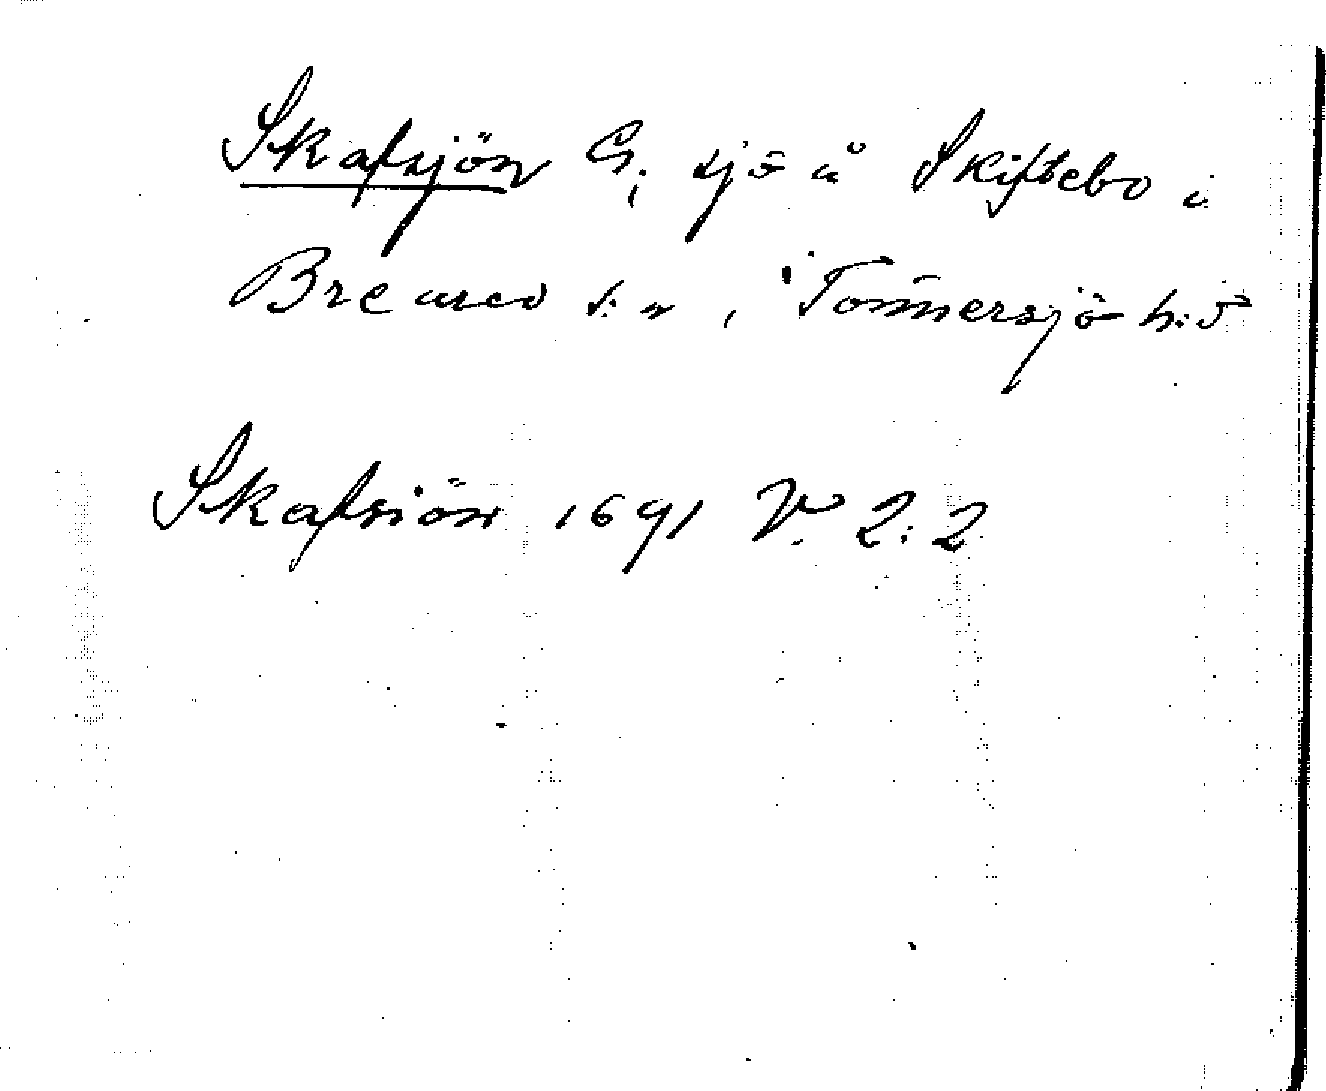 Skafsjön G; sjö å Skiftebo i
Breared s:n, Tönnersjö h:d
Skafsiön 1691 V. 2:2